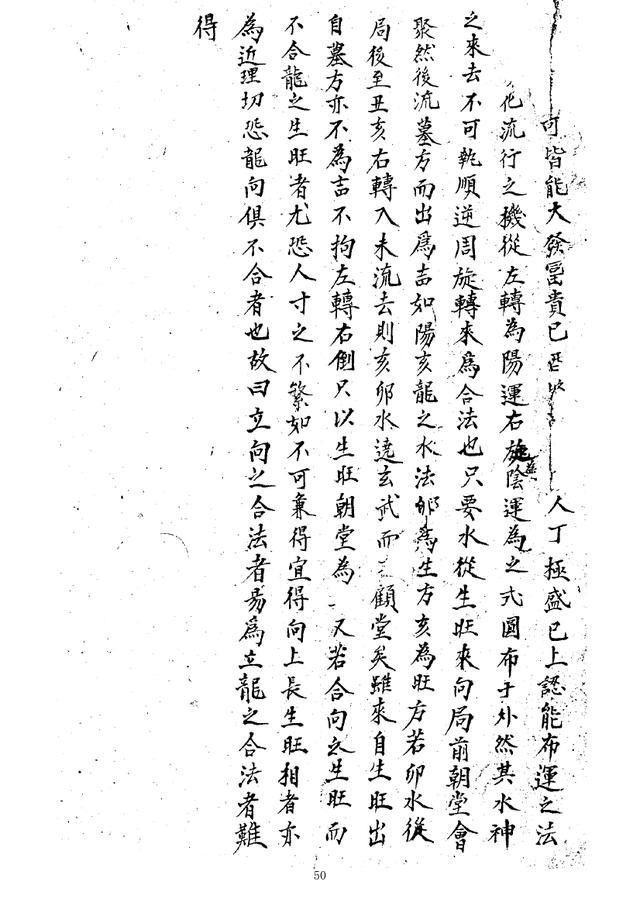 可皆能大發冨貴已酉　人丁極盛已上認能布運之法
化流行之機從左轉為陽運右旋陰運為之式圓布于外然其水神
之來去不可執順逆周旋轉來為合法也只要水從生旺來向局前朝堂會
聚然後流墓方而出為吉如陽亥龍之水法卯為生方亥為旺方若卯水從
局後至丑亥右轉入未流去則亥卯水遶玄武而　顧堂矣雖來自生旺出
自墓方亦不為吉不拘左轉右倒只以生旺朝堂為　又若合向之生旺而
不合龍之生旺者尤恐人寸之不繁如不可兼得宜得向上長生旺相者亦
為近理切恐龍向俱不合者也故曰立向之合法者易為立龍之合法者難
得
50